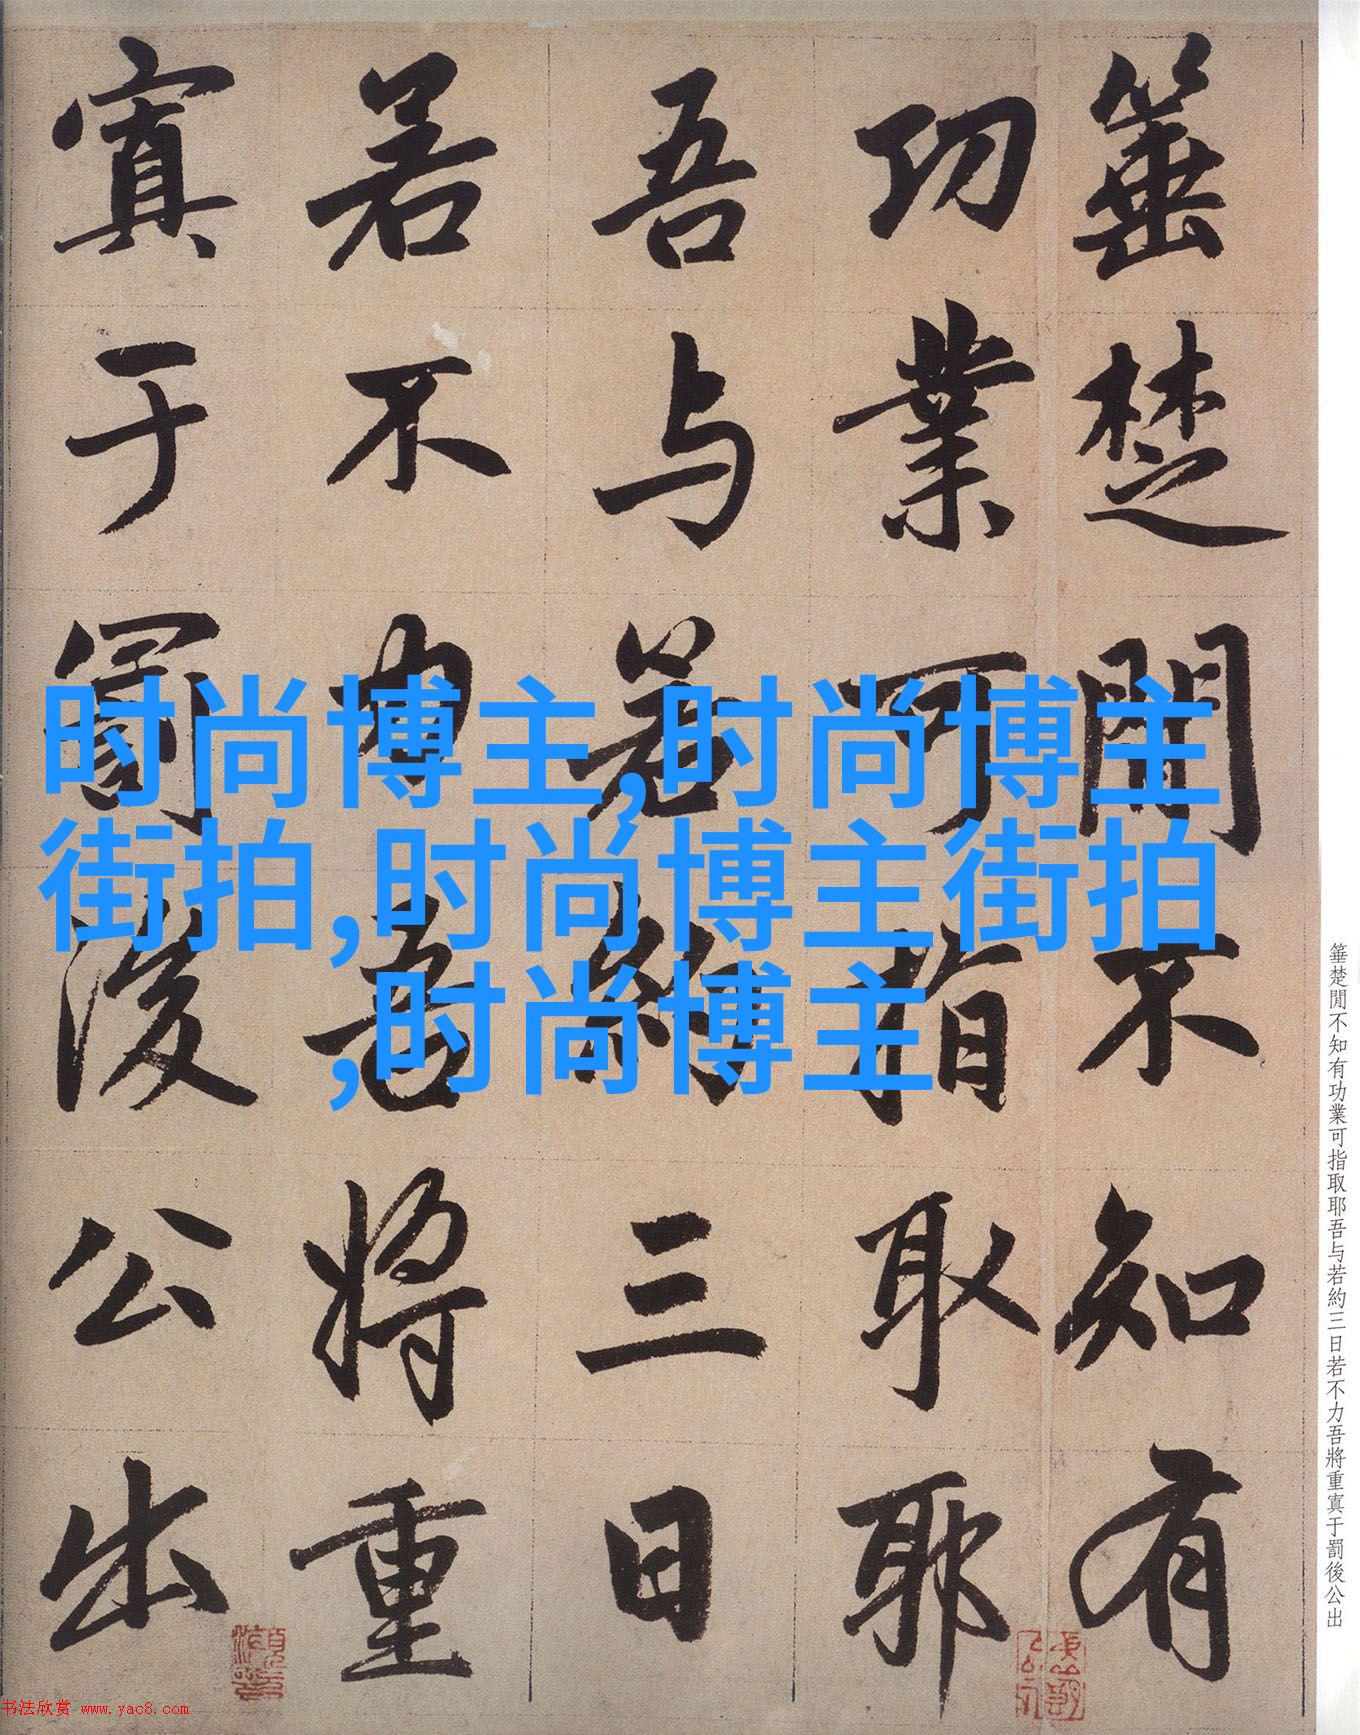 箠楚閒不知有
功業可指取耶
吾与若約三日
若不力吾將重
寘于罰後公出
时尚博主,时尚博主
街拍,时尚博主街拍
,时尚博主
箠楚閒不知有功業可指取耶吾与若約三日若不力吾將重寘于罰後公出
书法欣赏 www.yac8.com